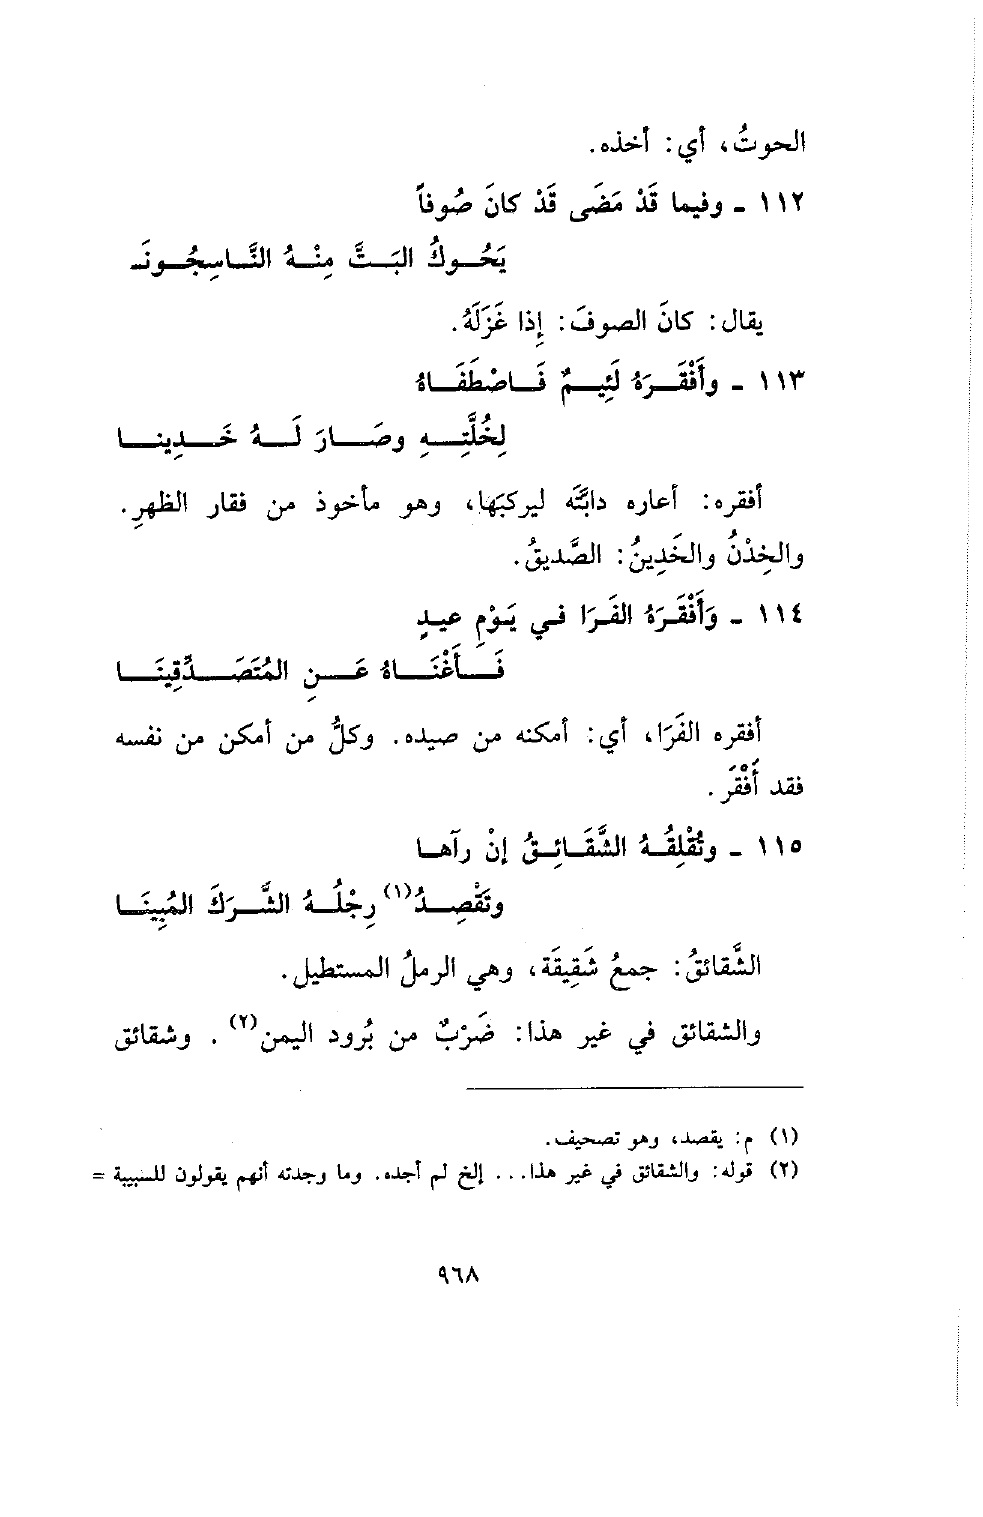 الحوتُ، أي: أخذه.
١١٢ ـ وفيما قَدْ مَضَى قَدْ كانَ صُوفاً
يَحُـوكُ البَـتَّ مِنْـهُ النَّـاسِجُـونَـ
يقال: كانَ الصوفَ: إِذا غَزَلَهُ.
١١٣ ـ وأَفْقَـرَهُ لَئِيـمٌ فَـاصْطَفَـاهُ
لِخُلَّتِـهِ وصَـارَ لَـهُ خَـدِينـا
أفقره: أعاره دابَّتَه ليركبَها، وهو مأخوذ من فقار الظهرِ.
والخِدْنُ والخَدِينُ: الصَّديقُ.
١١٤ ـ وَأَفْقَـرَهُ الفَـرَا فـي يَـوْمِ عيـدٍ
فَـأَغْنَـاهُ عَـنِ المُتَصَـدِّقِينَـا
أفقره الفَرَا، أي: أمكنه من صيده. وكلُّ من أمكن من نفسه
فقد أَفْقَرَ.
١١٥ ـ وتُقْلِقُـهُ الشَّقَـائِـقُ إنْ رآهـا
وتَقْصِـدُ(١) رِجْلُـهُ الشَّـرَكَ المُبِينَـا
الشَّقائقُ: جمعُ شَقِيقَة، وهي الرملُ المستطيل.
والشقائق في غير هذا: ضَرْبٌ من بُرود اليمن(٢). وشقائق
(١) م: يقصد، وهو تصحيف.
(٢) قوله: والشقائق في غير هذا... إلخ لم أجده. وما وجدته أنهم يقولون للسبيبة =
٩٦٨